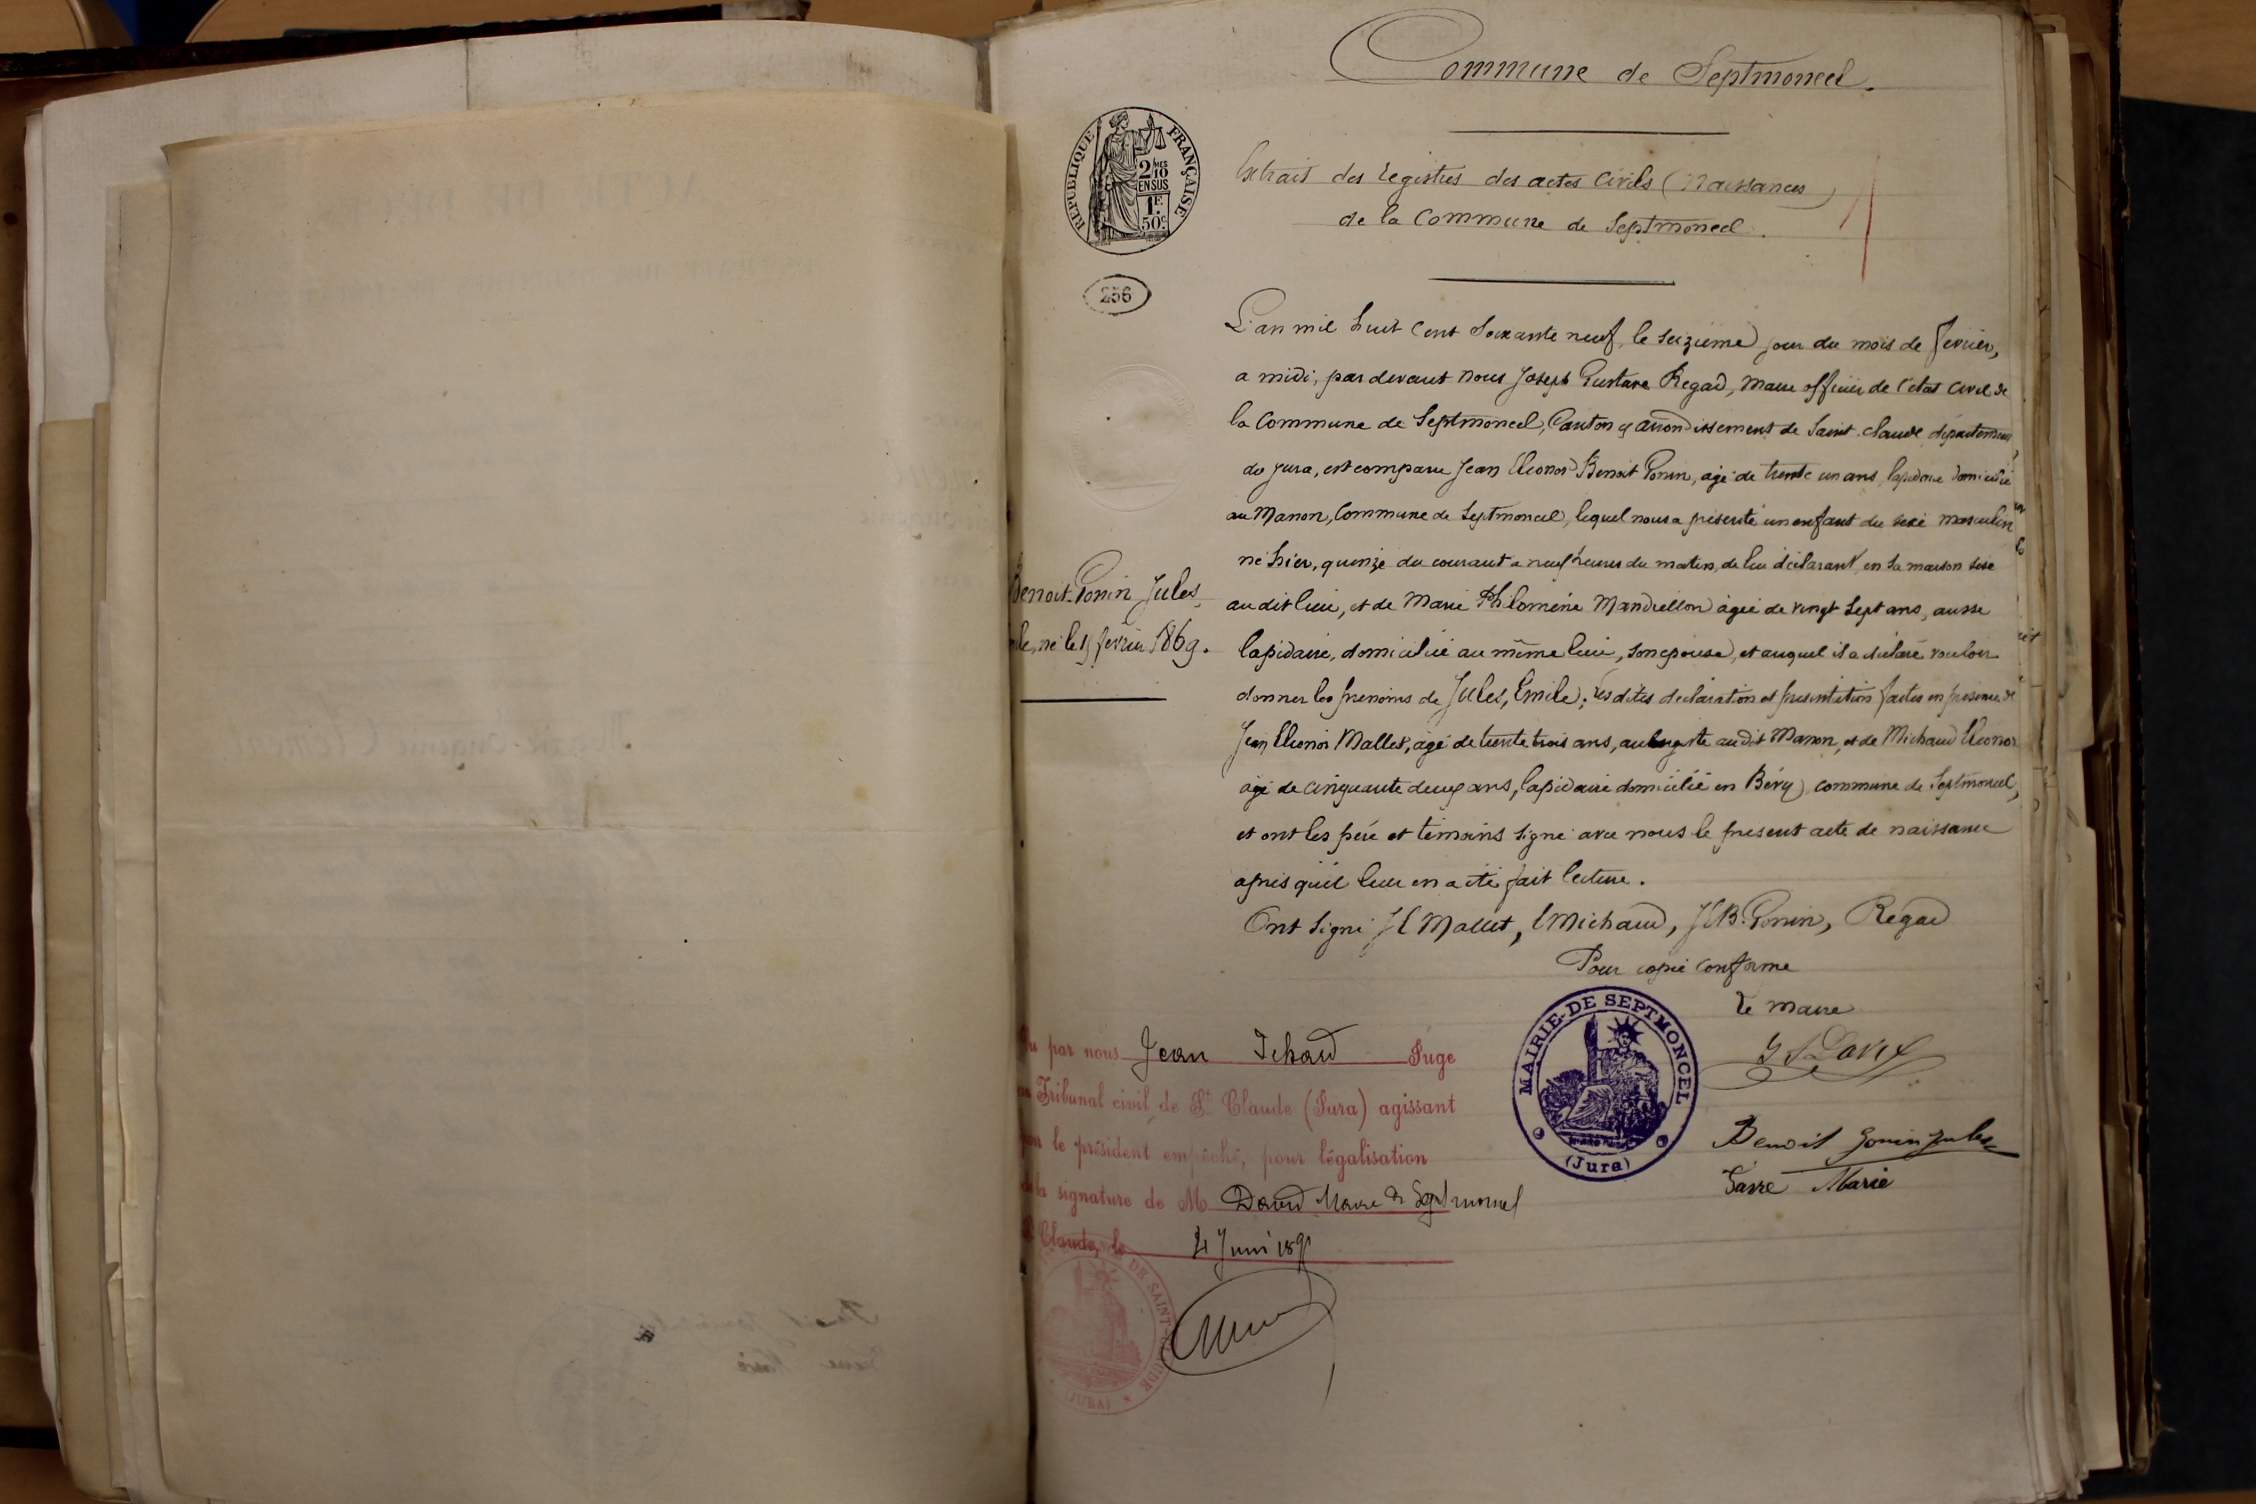 Commune de Septmoncel.
RÉPUBLIQUE FRANÇAISE
2/10MES
EN SUS
1F
50c
256
Extrait des registres des actes civils (Naissances)
de la Commune de Septmoncel.
L'an mil huit cent soixante neuf, le seizième jour du mois de février,
a midi, par devant nous Joseph Gustave Regad, maire officier de l'état civil de
la Commune de Septmoncel, Canton & arrondissement de Saint-Claude département
du Jura, est comparu Jean Eleonor Benoit Gonin, agé de trente un ans, lapidaire domicilié
au Manon, Commune de Septmoncel, lequel nous a présenté un enfant du sexe masculin
né hier, quinze du courant a neuf heures du matin, de lui déclarant, en sa maison sise
au dit lieu, et de Marie Philomène Mandrillon agée de vingt sept ans, aussi
lapidaire, domiciliée au même lieu, son épouse, et auquel il a déclaré vouloir
donner les prénoms de Jules, Emile; les dites déclaration et présentation faites en présence de
Jean Eleonor Mallet, agé de trente trois ans, aubergiste au dit Manon, et de Michaud Eleonor
agé de cinquante deux ans, lapidaire domicilié en Béry commune de Septmoncel,
et ont les père et témoins signé avec nous le présent acte de naissance
après qu'il leur en a été fait lecture.
Ont signé J E Mallet, E Michaud, J E B. Gonin, Regad
Pour copie conforme
Le maire
Benoit-Gonin Jules,
né le 15 février 1869.
MAIRIE DE SEPTMONCEL
(Jura)
Benoit Gonin Jules
Favre Marie
Vu par nous Jean Juge
au Tribunal civil de St Claude (Jura) agissant
pour le président empêché, pour légalisation
de la signature de M David Maire de Septmoncel
St Claude, le 4 Juin 189
DE SAINT-CLAUDE
(JURA)